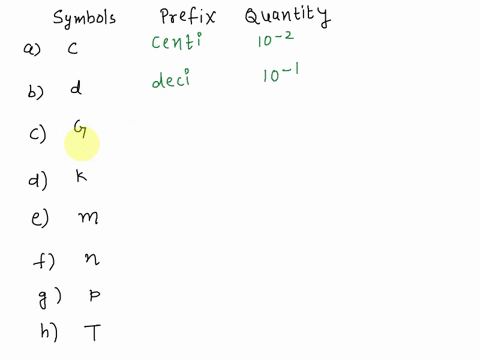 Symbols Prefix Quantity
a) c centi 10⁻²
b) d deci 10⁻¹
c) G
d) k
e) m
f) n
g) p
h) T